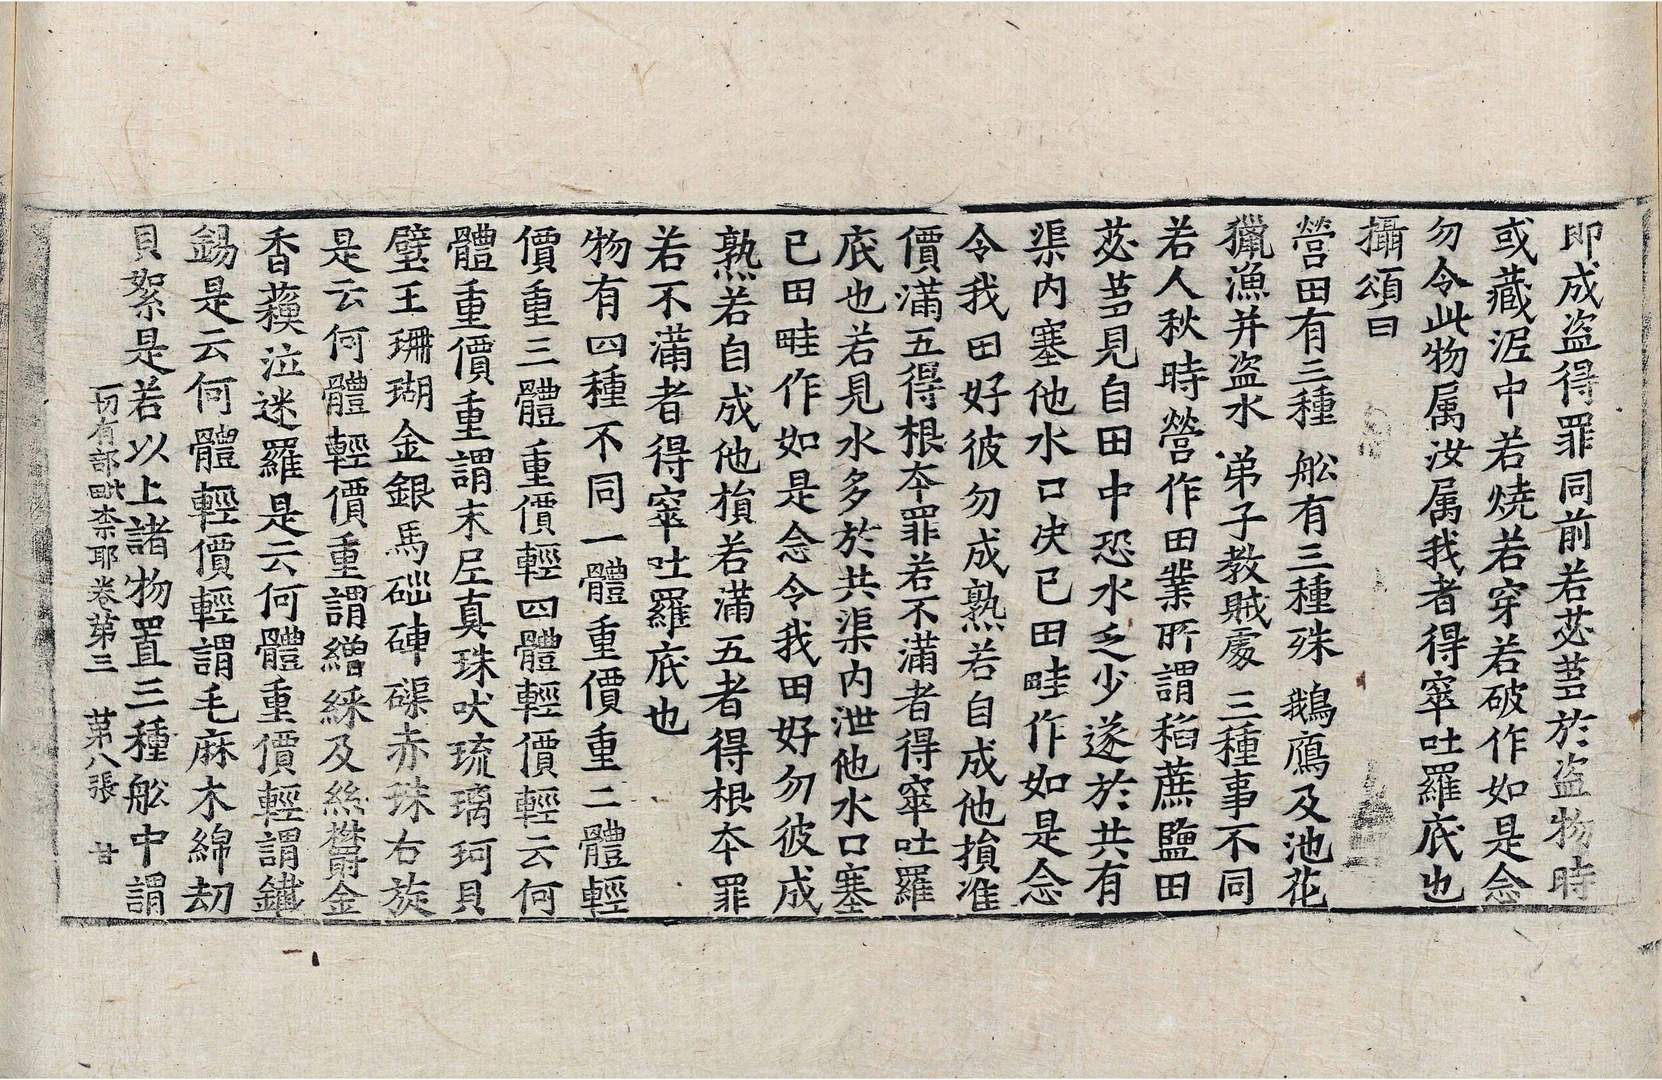 即成盗得罪同前若苾蒭於盗物時
或藏泥中若燒若穿若破作如是念
勿令此物属汝属我者得窣吐羅底也
攝頌曰
營田有三種 舩有三種殊 鵝鴈及池花
獵漁并盗水 弟子教賊處 三種事不同
若人秋時營作田業所謂稻蔗鹽田
苾蒭見自田中恐水乏少遂於共有
渠内塞他水口决已田畦作如是念
令我田好彼勿成熟若自成他損准
價滿五得根夲罪若不滿者得窣吐羅
底也若見水多於共渠内泄他水口塞
已田畦作如是念令我田好勿彼成
熟若自成他損若滿五者得根夲罪
若不滿者得窣吐羅底也
物有四種不同一體重價重二體輕
價重三體重價輕四體輕價輕云何
體重價重謂末尼真珠吠琉璃珂貝
璧玉珊瑚金銀馬碯硨磲赤珠右旋
是云何體輕價重謂繒綵及絲欝金
香蘓泣迷羅是云何體重價輕謂鐵
錫是云何體輕價輕謂毛麻木綿刧
貝絮是若以上諸物置三種舩中謂
一切有部毗柰耶卷第三 第八張 甘